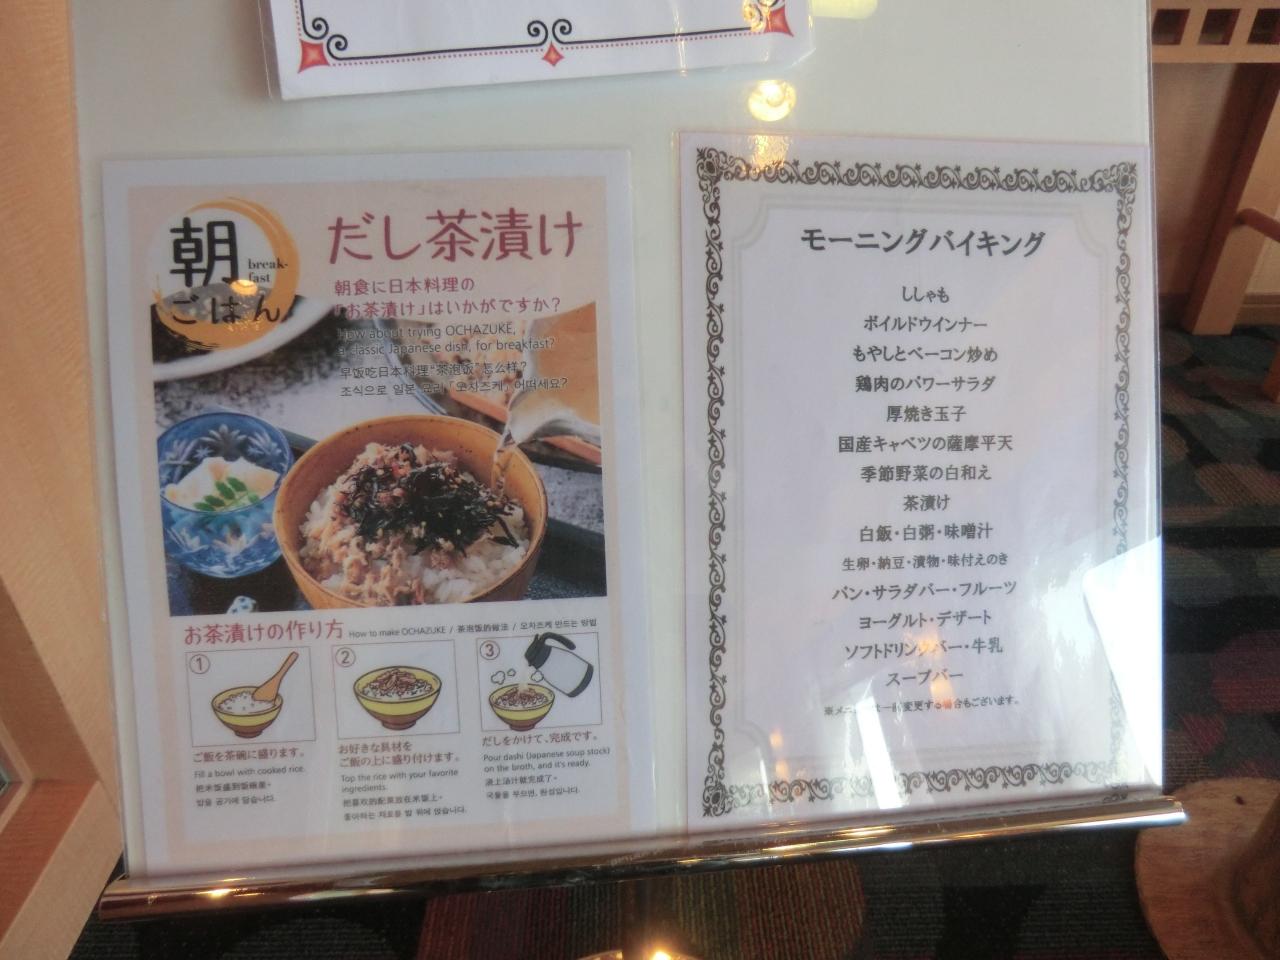 朝
ごはん
break-
fast
だし茶漬け
朝食に日本料理の
「お茶漬け」はいかがですか?
How about trying OCHAZUKE,
a classic Japanese dish, for breakfast?
早饭吃日本料理"茶泡饭"怎么样?
조식으로 일본 요리「오차즈케」어떠세요?
お茶漬けの作り方 How to make OCHAZUKE / 茶泡饭的做法 / 오차즈케 만드는 방법
①
ご飯を茶碗に盛ります。
Fill a bowl with cooked rice.
把米饭盛到饭碗里。
밥을 공기에 담습니다.
②
お好きな具材を
ご飯の上に盛り付けます。
Top the rice with your favorite
ingredients.
把喜欢的配菜放在米饭上。
좋아하는 재료를 밥 위에 얹습니다.
③
だしをかけて、完成です。
Pour dashi (Japanese soup stock)
on the broth, and it's ready.
浇上汤汁就完成了。
국물을 부으면, 완성입니다.
モーニングバイキング
ししゃも
ボイルドウインナー
もやしとベーコン炒め
鶏肉のパワーサラダ
厚焼き玉子
国産キャベツの薩摩平天
季節野菜の白和え
茶漬け
白飯・白粥・味噌汁
生卵・納豆・漬物・味付えのき
パン・サラダバー・フルーツ
ヨーグルト・デザート
ソフトドリンクバー・牛乳
スープバー
※メニューは一部変更する場合もございます。